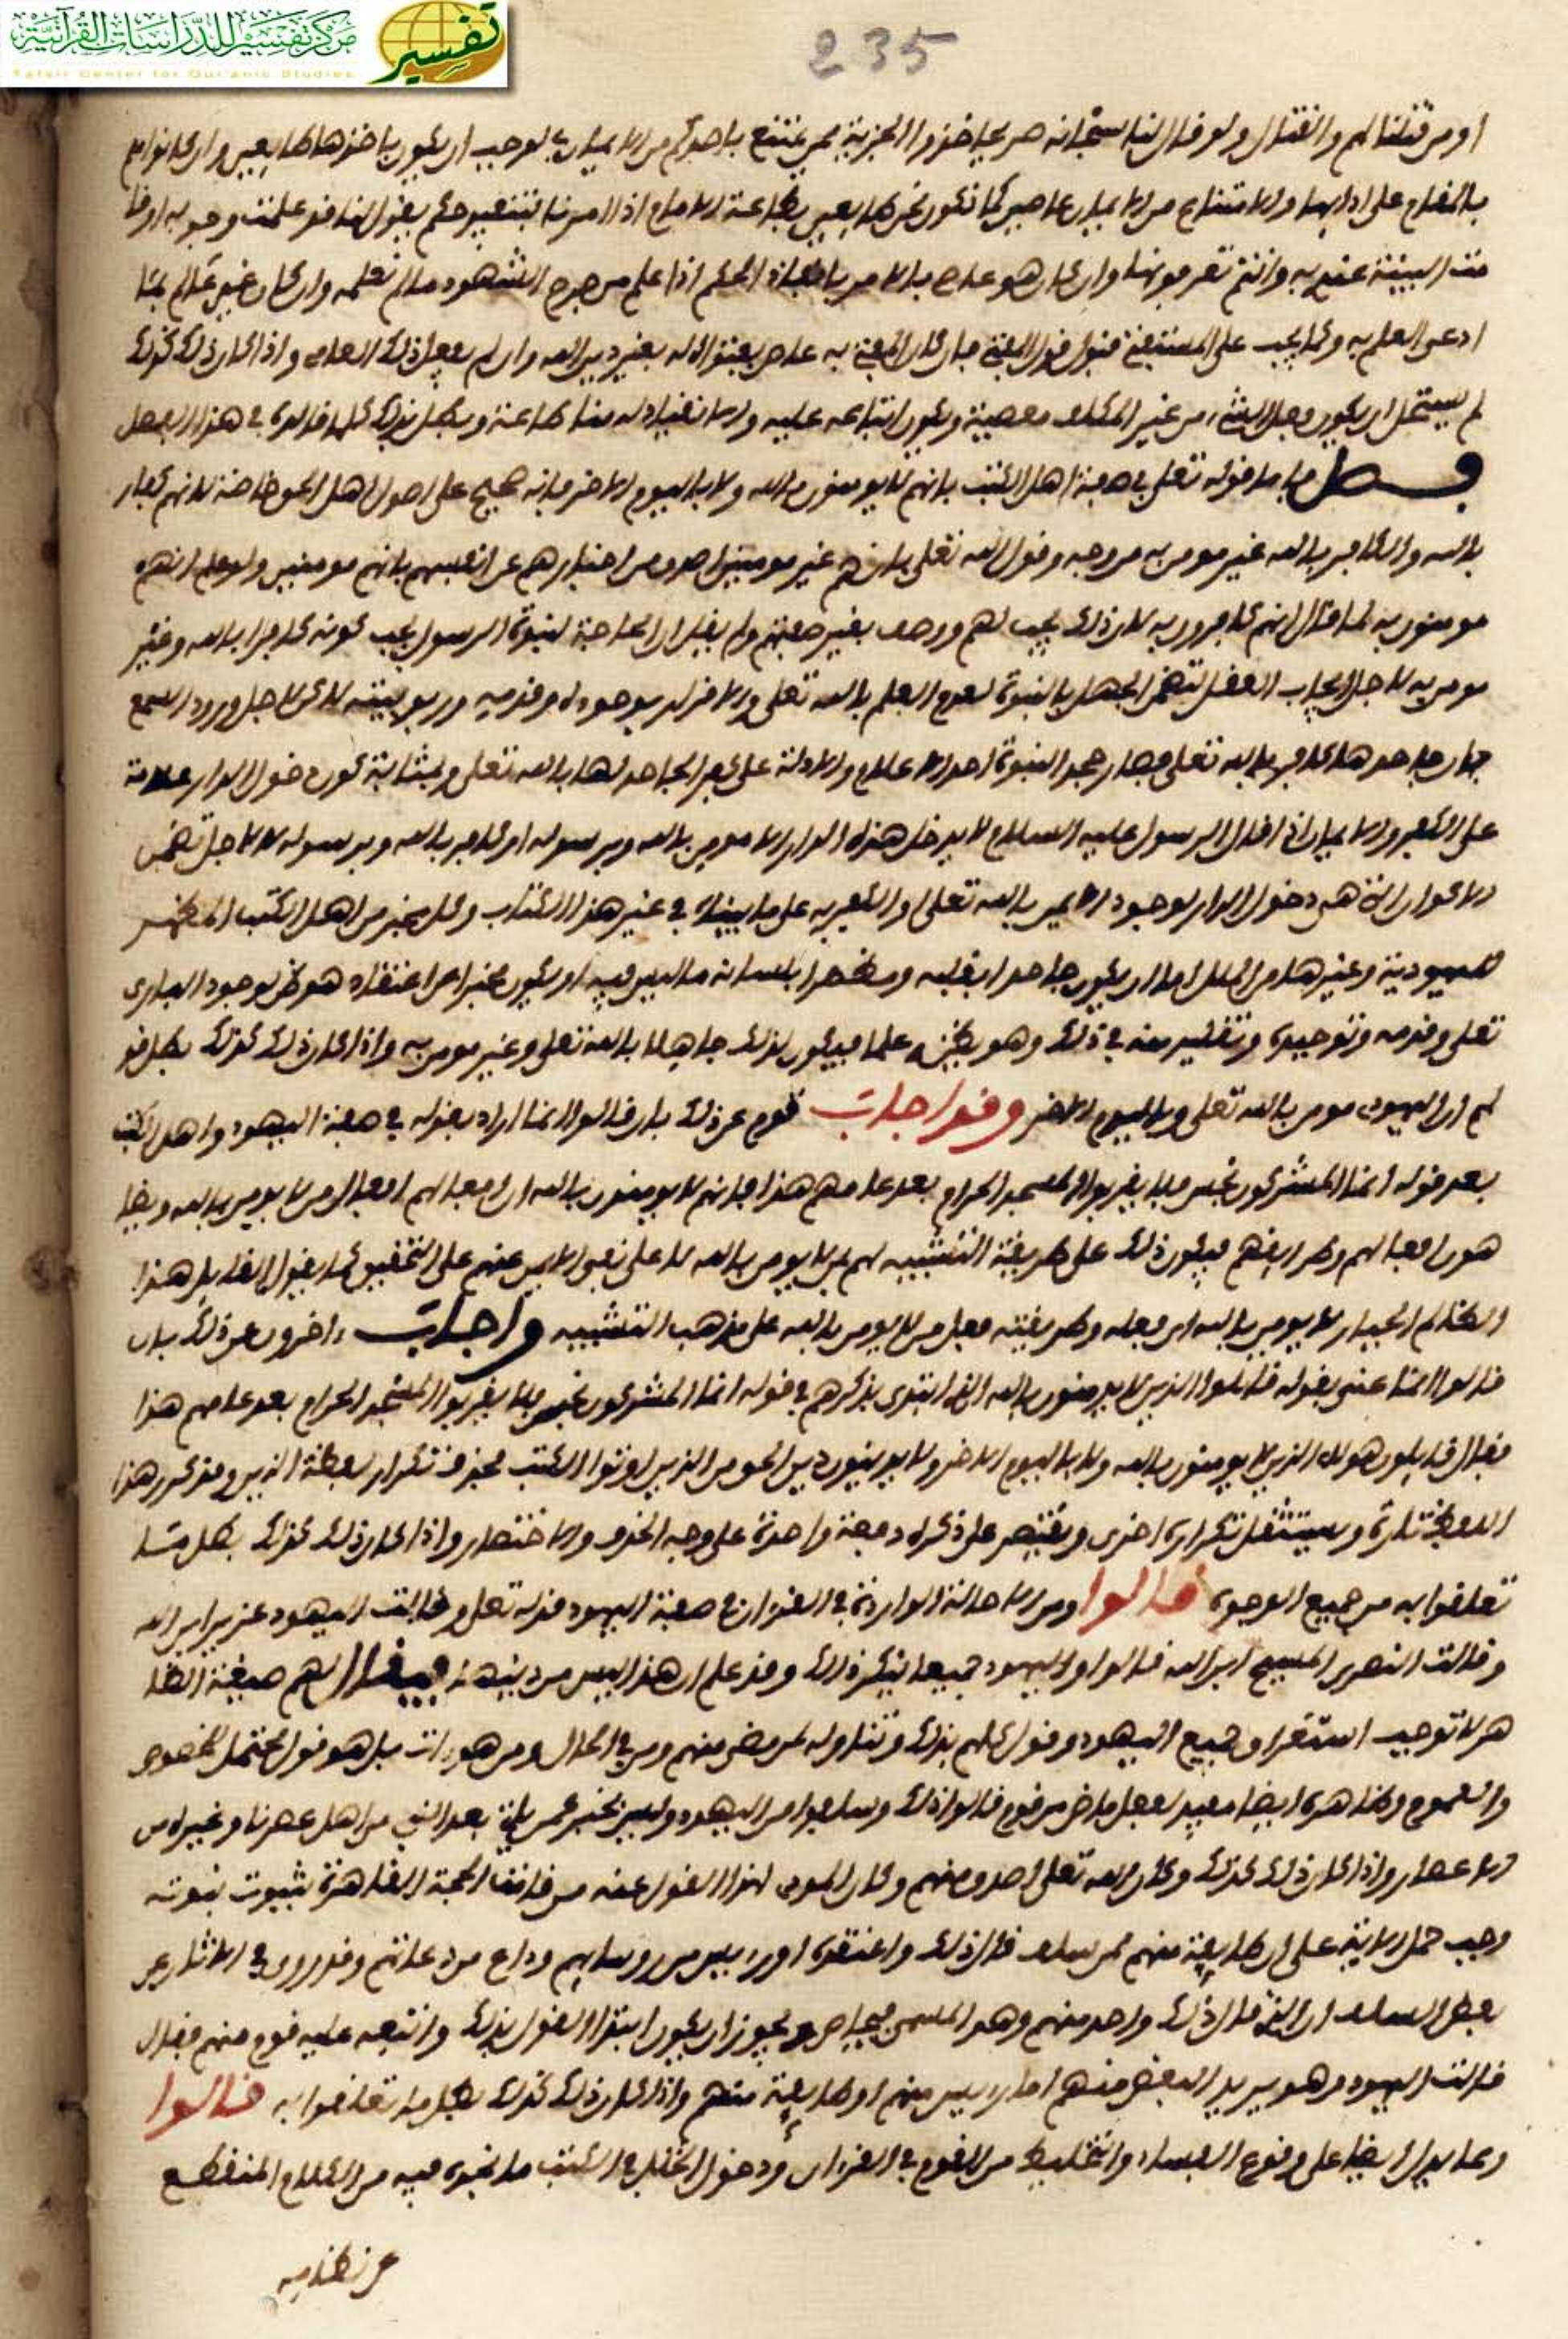 مركز تفسير للدراسات القرآنية
Tafsir Center for Qur'anic Studies
تفسير
235
او من قتلنا لهم والقتال ولو قال لنا سبحانه خذوا الجزية ممن يمتنع باحدكم من الايمان لوجب ان يكون باخذها طايعين وان كانوا
بالمقام على ادايها والامتناع من الايمان عاصين كما نكون نحن طايعين بطاعة الامام اذا امرنا بتنفيذ حكم يقول لنا قد علمت وجوبه او قا
مت البينة عندي به وانتم تعرفونها وان كان هو عاص بالامر بانفاذ الحكم اذا علم من جرح الشهود ما لم نعلمه وان كان غير عالم بما
ادعى العلم به وكما يجب على المستفتي قبول قول المفتي فان كان المفتي به عاص بفتواه له بغير دين الله وان لم يعلم ذلك العامي واذا كان ذلك كذلك
لم يستحل ان يكون فعل الشيء من غير المكلف معصية ويكون اتباعه عليه والانقياد له منا طاعة وبطل بذلك كلما قالوه في هذا الفصل
فصل فاما قوله تعلى في صفة اهل الكتب بانهم لا يومنون بالله ولا باليوم الاخر فانه صحيح على اصول اهل الحق خاصة لانهم كفار
بالله والكافر بالله غير مومن به من وجه وقول الله تعلى بانهم غير مومنين اصدق من اخبارهم عن انفسهم بانهم مومنين ولو علم انهم
مومنون به لما قال انهم كافرون به لان ذلك يجب لهم ووصف بغير صفتهم ولم يقل ان الجاحد لنبوة الرسول يجب كونه كافرا بالله وغير
مومن به لاجل ايجاب العقل لتضمن الجهل بالنبوة لعدم العلم بالله تعلى والاقرار بوجوده وقدمه وربوبيته لاكن لاجل ورود السمع
بان جاحدها كافر بالله تعلى فصار جحد النبوة احد الاعلام والادلة على كفر الجاحد لها بالله تعلى وبمثابة كون دخول الدار علامة
على الكفر والايمان اذا قال الرسول عليه السلام لا يدخل هذه الدار الا مومن بالله وبرسوله او كافر بالله وبرسوله لا لاجل تضمن
الاكوان التي هي دخول الدار لوجود الايمن بالله تعلى او الكفر به على ما بيناه في غير هذا الكتاب وكل مخبر من اهل الكتب المظهر
لليهودية وغيرها من الملل اما ان يكون جاحدا بقلبه ومظهرا بلسانه ما ليس فيه او يكون مخبرا عن اعتقاده هو ظن لوجود البارى
تعلى وقدمه وتوحيده وتقليد منه في ذلك وهو يظنه علما فيكون لذلك جاهلا بالله تعلى وغير مومن به واذا كان ذلك كذلك بطل قو
لهم ان اليهودى مومن بالله تعلى وباليوم الاخر وقد اجاب قوم عن ذلك بان قالوا انما اراد بقوله في صفة اليهود واهل الكتب
بعد قوله انما المشركون نجس فلا يقربوا المسجد الحرام بعد عامهم هذا فانهم لا يومنون بالله ان افعالهم افعال من لا يومن بالله ويضا
هون افعالهم وطرايقهم فيكون ذلك على طريقة التشبيه لهم بمن لا يومن بالله لا على نفى الايمن عنهم على التحقيق كما يقول القايل هذا
الظالم الجبار لا يومن بالله اى فعله وطريقته فعل من لا يومن بالله على مذهب التشبيه واجاب اخرون عن ذلك بان
قالوا انما عنى بقوله قاتلوا الذين لا يومنون بالله الذين ابتدى بذكرهم في قوله انما المشركون نجس فلا يقربوا المسجد الحرام بعد عامهم هذا
فقال قاتلوا هولاء الذين لا يومنون بالله ولا باليوم الاخر ولا يدينون دين الحق من الذين اوتوا الكتب فحذف تكرار لفظة الذين وقد تكرر هذا
اللفظ تارة ويستثقل تكراره اخرى ويقتصر على ذكره دفعة واحدة على وجه الحذف والاختصار واذا كان ذلك كذلك بطل ما
تعلقوا به من جميع الوجوه قالوا ومن الاحالة الواردة في القران في صفة اليهود قوله تعلى وقالت اليهود عزير ابن الله
وقالت النصرى المسيح ابن الله قالوا واليهود جميعا ينكر ذلك وقد علم ان هذا ليس من دينها فيقال لهم صيغة الظا
هر لا توجب استغراق جميع اليهود وقول كلهم بذلك وتناوله لمن مضى منهم ومن في الحال ومن هو ات بل هو قول محتمل للخصوص
والعموم وظاهره ايضا مفيد لفعل ماض من قوم قالوا ذلك وسلفوا من اليهود وليس بخبر عمن ياتي بعد النبي من اهل عصرنا وغيره من
الاعصار واذا كان ذلك كذلك وكان الله تعلى اصدق منهم وكان المودى لهذا القول عنه من قامت الحجة القاهرة بثبوت نبوته
وجب حمل الاية على ان طايفة منهم ممن سلف قال ذلك واعتقده او رييس من روسايهم وداع من دعاتهم وقد روى في الاثار عن
بعض السلف ان الذي قال ذلك واحد منهم وهو المسمى فنحاص ويجوز ان يكون ابتدا القول بذلك واتبعه عليه قوم منهم فقال
قالت اليهود وهو يريد البعض منهم اما رييس منهم او طايفة منهم واذا كان ذلك كذلك بطل ما تعلقوا به قالوا
ومما يدل ايضا على وقوع الفساد والتخليط من القوم في القران ودخول الخلل في الكتب ما نجده فيه من الكلام المنقطع
عن نظامه